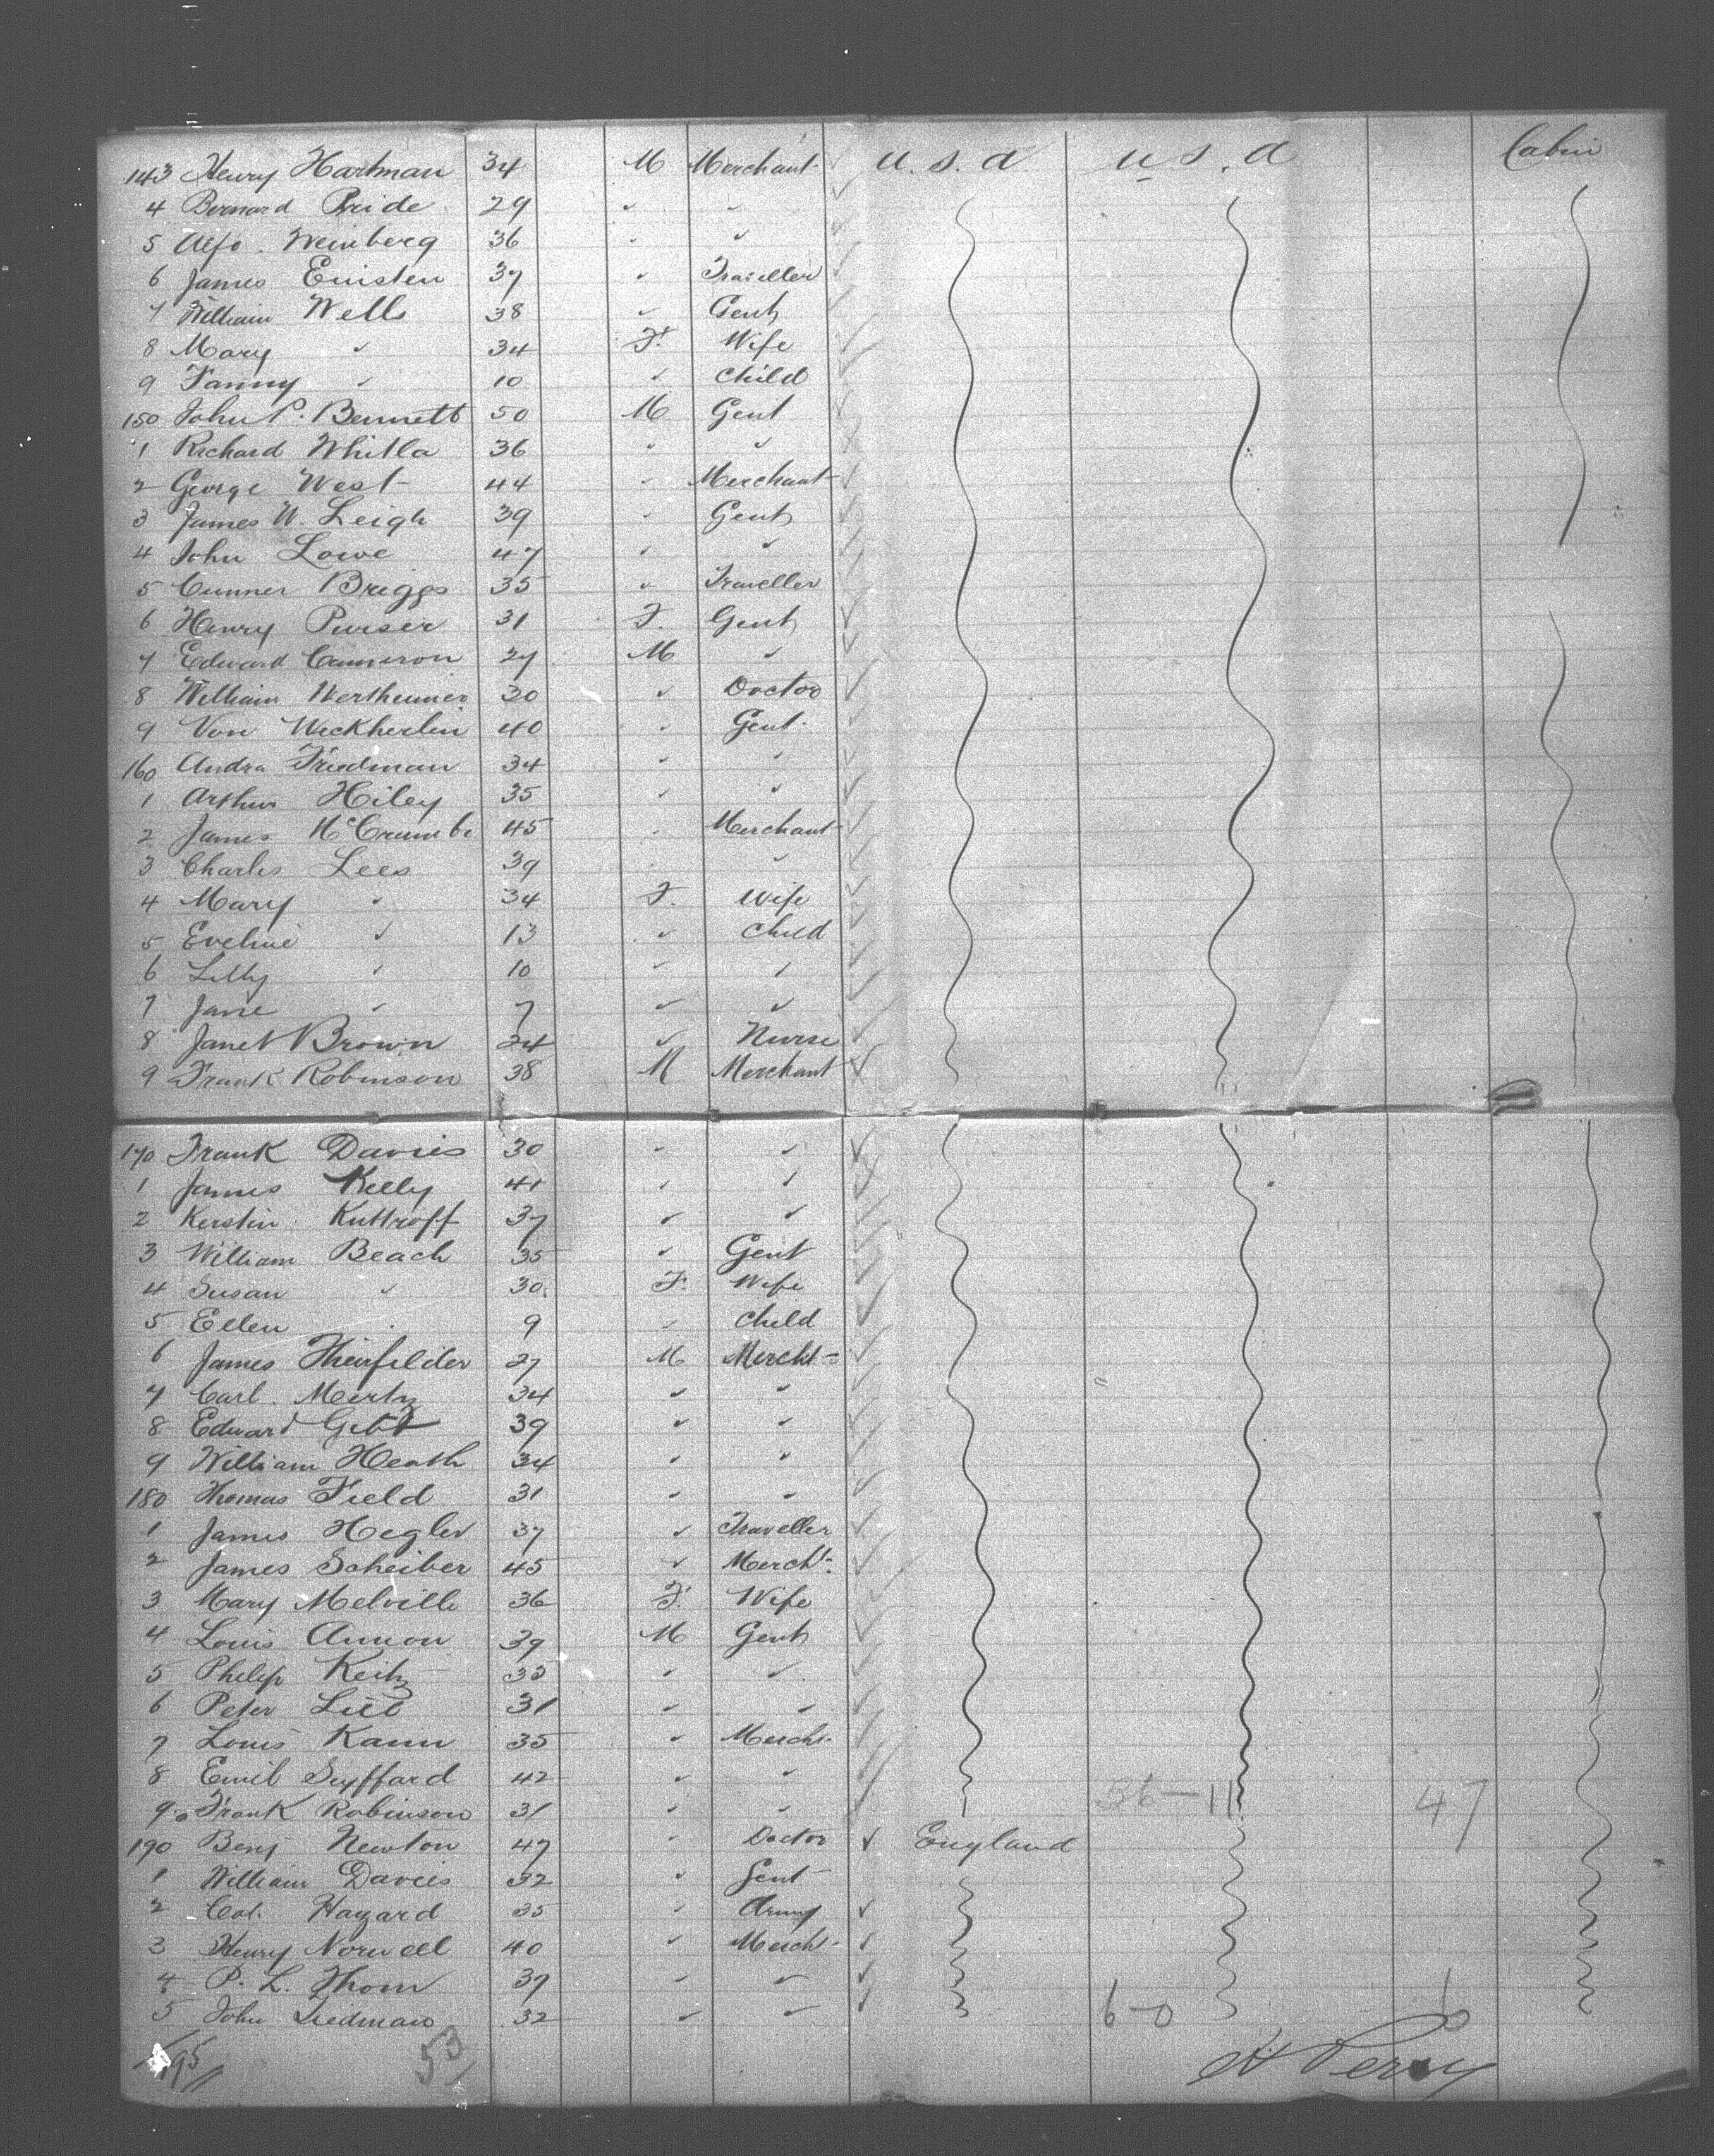 143 Henry Hartman 34 M Merchant U.S.A U.S.A Cabin
4 Bernard Pride 29 " "
5 Alfo. Weinberg 36 " "
6 James Einsten 37 " Traveller
7 William Wells 38 " Gent
8 Mary " 34 F. Wife
9 Fanny " 10 " Child
150 John P. Bennett 50 M Gent
1 Richard Whitla 36 " "
2 George West 44 " Merchant
3 James W. Leigh 39 " Gent
4 John Lowe 47 " "
5 Cunner Briggs 35 " Traveller
6 Henry Purser 31 F. Gent
7 Edward Cameron 27 M "
8 William Wertheimer 30 " Doctor
9 Von Weckherlin 40 " Gent.
160 Andra Friedman 34 " "
1 Arthur Hiley 35 " "
2 James McCrumbe 45 " Merchant
3 Charles Lees 39 " "
4 Mary " 34 F. Wife
5 Eveline " 13 " Child
6 Lilly " 10 " "
7 Jane " 7 " "
8 Janet Brown 24 " Nurse
9 Frank Robinson 38 M Merchant
170 Frank Davies 30 " "
1 James Kelly 41 " "
2 Kerstin Kuttroff 37 " "
3 William Beach 35 " Gent
4 Susan " 30. F. Wife
5 Ellen " 9 " Child
6 James Thierfelder 27 M Mercht
7 Carl. Mertz 34 " "
8 Edward 39 " "
9 William Heath 34 " "
180 Thomas Field 31 " "
1 James Hegler 37 " Traveller
2 James Scheiber 45 " Mercht.
3 Mary Melville 36 F. Wife
4 Louis 39 M Gent
5 Philip Keitz 33 " "
6 Peter 31 " "
7 Louis Kann 35 " Mercht.
8 Emil Seyffard 42 " "
9 Frank Robinson 31 " " 36-11 47
190 Benj Newton 47 " Doctor England
1 William Davies 32 " Gent
2 Col. Hazard 35 " Army
3 Henry Norvell 40 " Mercht.
4 P. L. Thom 39 " "
5 John 32 " " 6-0 6
195 53 Percy